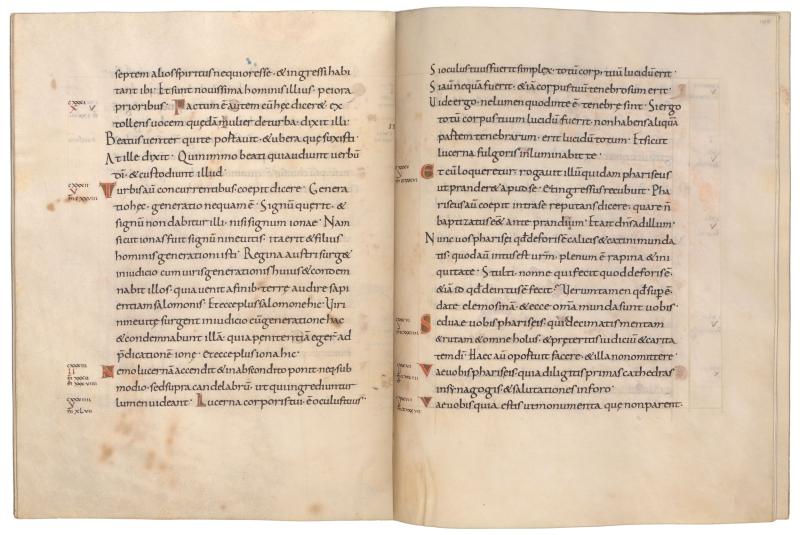 septem alios spiritus nequiores se · & ingressi habi
tant ibi · Et sunt nouissima hominis illius · peiora
prioribus · Factum ē autem cū hęc dicer& · ex
tollens uocem quędā mulier de turba · dixit illi ·
Beatus uenter qui te portauit · & ubera quę suxisti ·
At ille dixit · Quinimmo beati qui audiunt uerbū
dī · & custodiunt illud ·
Turbis aū concurrentibus · coepit dicere · Genera
tio hęc · generatio nequam ē · Signū quęrit · &
signū non dabitur illi · nisi signum ionae · Nam
sicut ionas fuit signū nineuitis · ita erit & filius
hominis generationi isti · Regina austri surg&
in iudicio cum uiris generationis huius & condem
nabit illos · quia uenit a finib· terrę audire sapi
entiam salomonis · Et ecce plus salomone hic · Uiri
nineuitę surgent in iudicio cū generatione hac
& condemnabunt illā · quia penitentiā eger̄ ad
p̄dicationē ionę · et ecce plus iona hic ·
Nemo lucernā accendit & in abscondito ponit neq· sub
modio · sed supra candelabrū · ut qui ingrediuntur
lumen uideant · Lucerna corporis tui · ē oculus tuus ·
Si oculus tuus fuerit simplex · totū corp· tuū lucidū erit ·
Si aū nequā fuerit · &iā corpus tuū tenebrosum erit ·
Uide ergo · ne lumen quod in te ē tenebrę sint · Si ergo
totū corpus tuum lucidū fuerit · non habens aliquā
partem tenebrarum · erit lucidū totum · Et sicut
lucerna fulgoris inluminabit te ·
Et cū loqueretur · rogauit illū quidam phariseus
ut prander& apud se · Et ingressus recubuit · Pha
riseus aū coepit intra se reputans dicere · quare n̄
baptizatus ess& ante prandium · Et ait dn̄s ad illum ·
Nunc uos pharisei qđ de foris ē calicis & catini munda
tis · quod aū intus est ur̄m · plenum ē rapina & ini
quitate · Stulti · nonne qui fecit quod de foris ē ·
&iā id qđ de intus ē fecit · Uerumtamen qđ supē ·
date elemosinā · & ecce omīa munda sunt uobis ·
Sed uae uobis phariseis · qui decimatis mentam
& rutam & omne holus · & pręteritis iudiciū & carita
tem dī · Haec aū oportuit facere · & illa non omittere ·
Vae uobis phariseis · quia diligitis primas cathedras
in synagogis & salutationes in foro ·
Vae uobis quia estis ut monumenta quę non parent ·